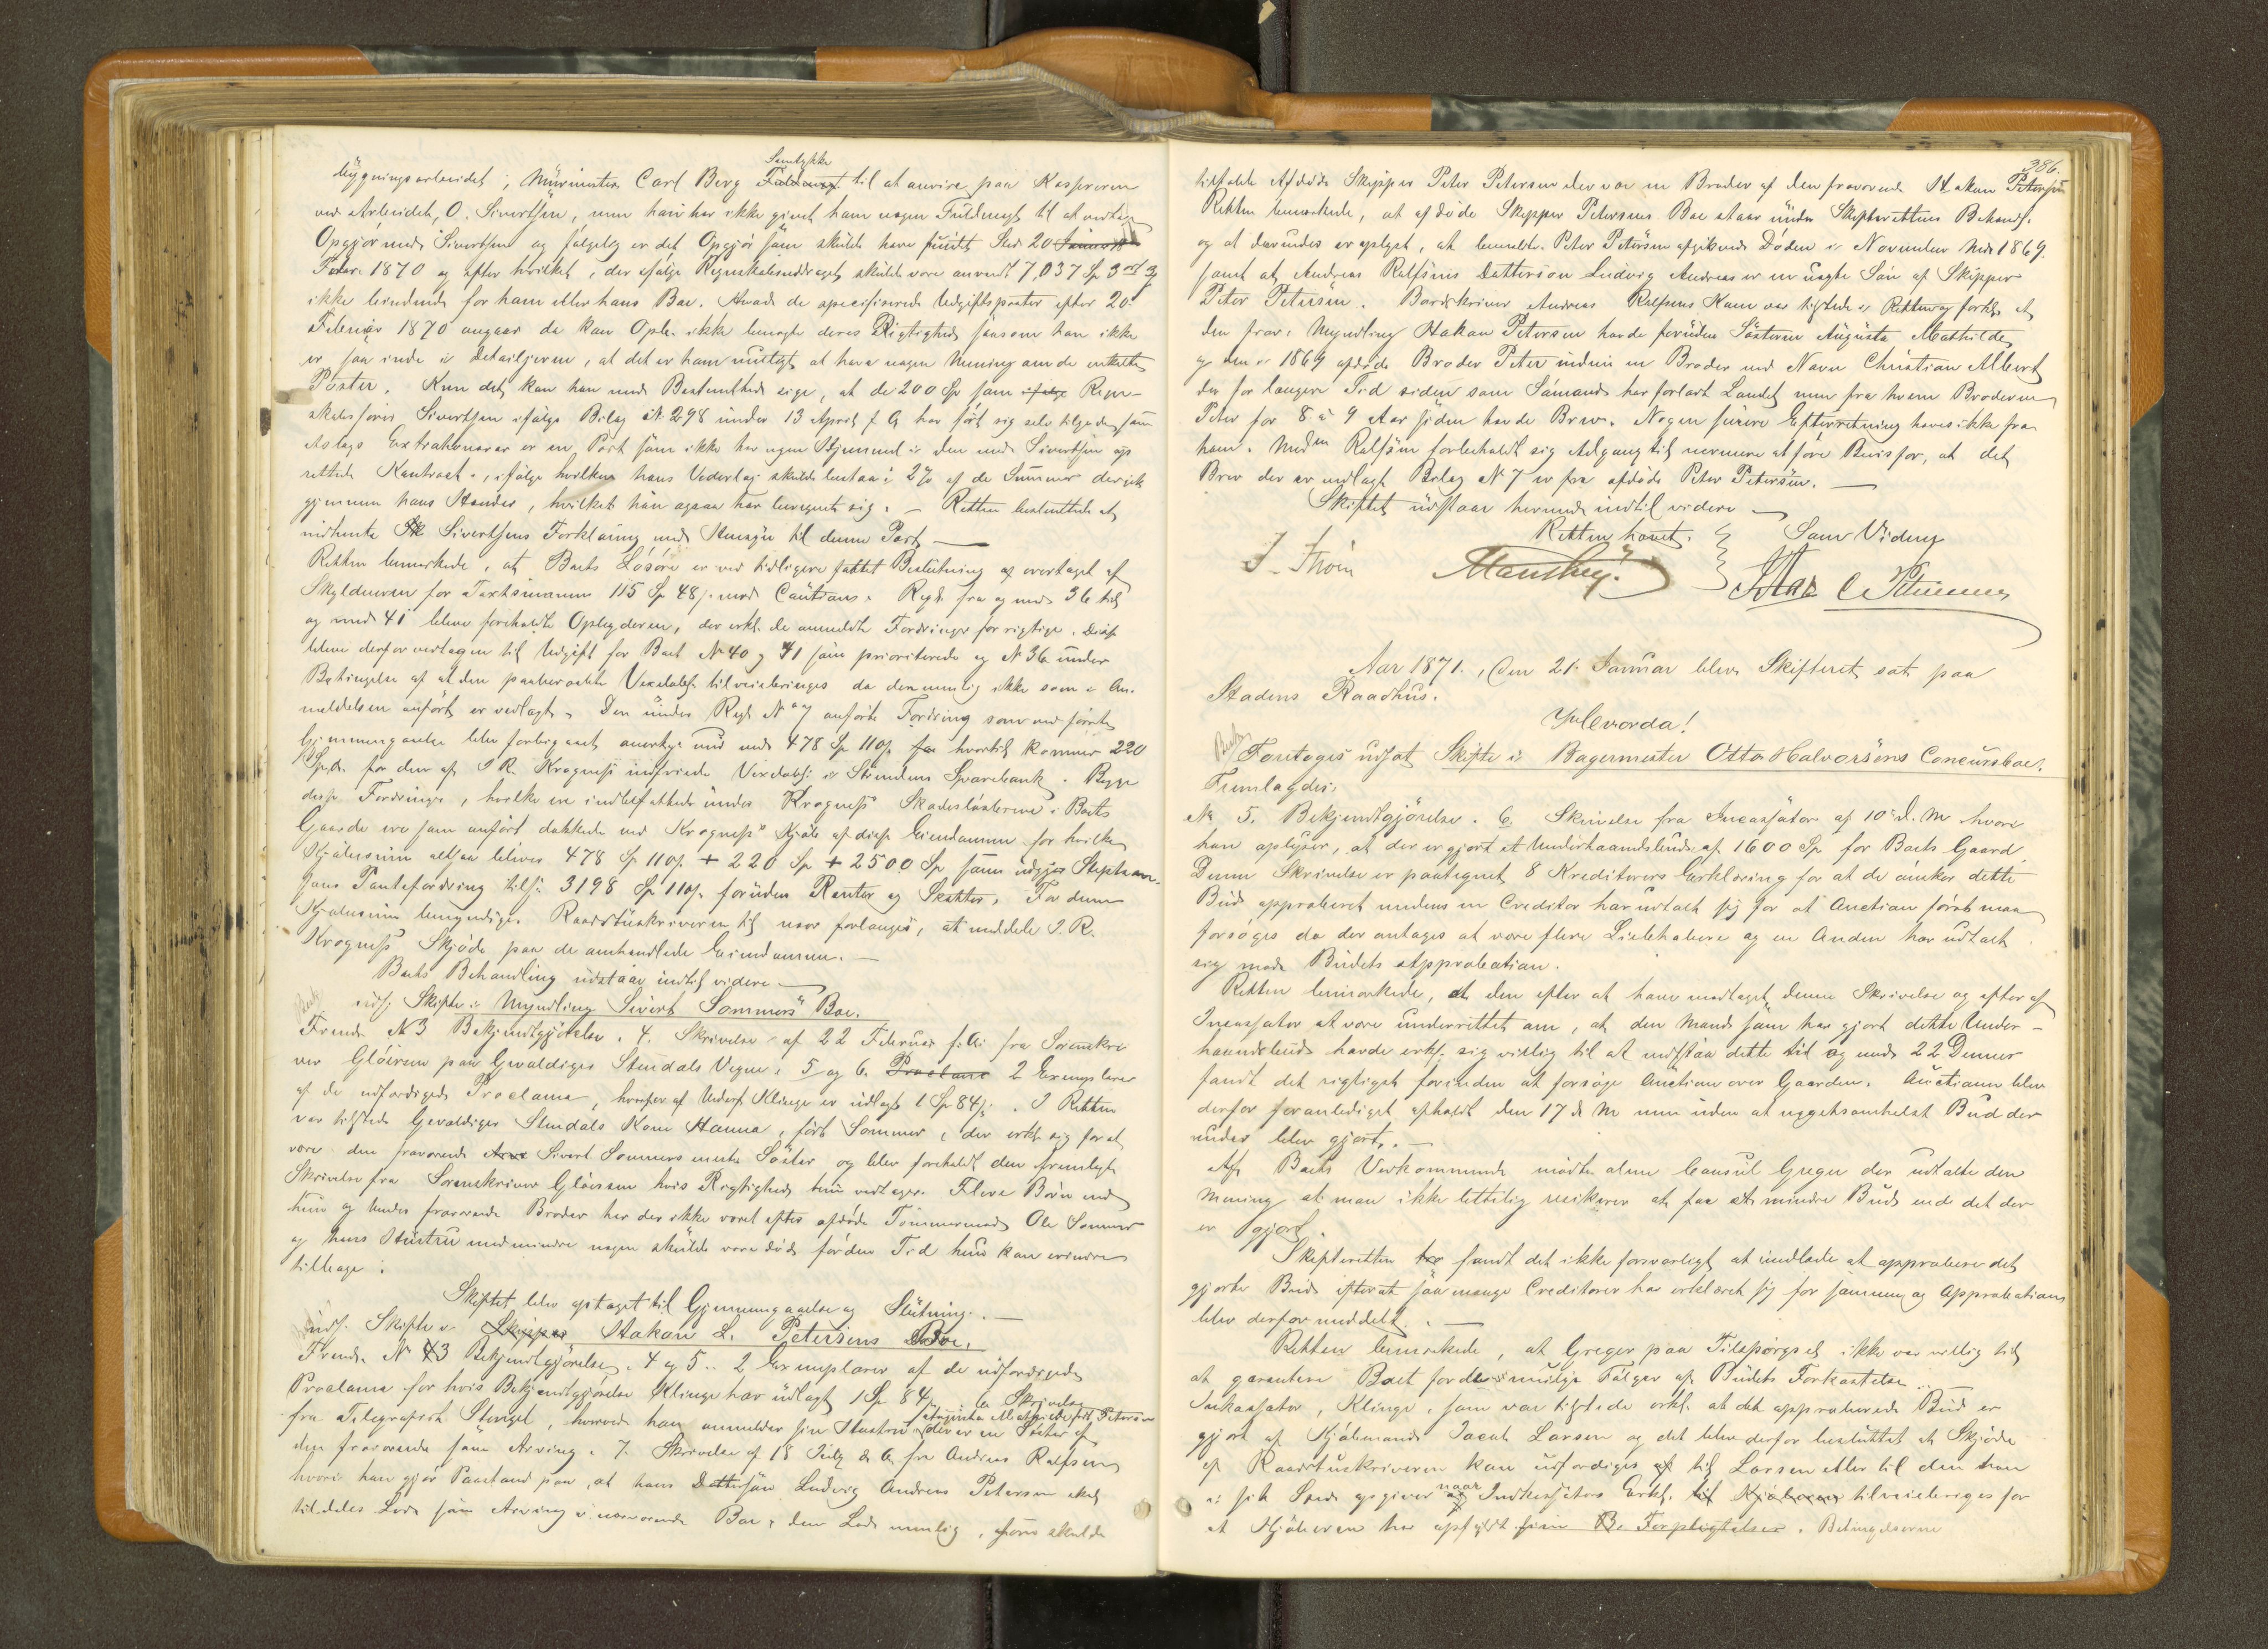 Samtykke
bygningsarbeidet, Murmester Carl Berg Fuldmagt til at anvise paa Kassereren
ved Arbeidet, O. Sivertsen, men han har ikke givet ham nogen Fuldmagt til at vedtage
Opgjör med Sivertsen og fölgelig er det Opgjör som skulde have fundet Sted 20 Januar
Febr. 1870 og efter hvilket, der ifölge Regnskabsuddraget skulde være anvendt 7,037 Sp 3 ort
ikke bindende for ham eller hans Bo. Hvad de specificerede Udgiftsposter efter 20.
Februar 1870 angaar da kan Opb. ikke benegte deres Rigtighed saasom han ikke
er saa inde i Detailjerne, at det er ham muligt at have nogen Mening om de enkelte
Poster. Kun det kan han med Bestemthed sige, at de 200 Sp som ifölge Regn-
skabsförer Sivertsen ifölge Bilag No 298 under 13 April f. A. har fört sig selv tilgode som
Aslags Extrahonorar er en Post som ikke har nogen Hjemmel i den med Sivertsen op
rettede Kontract, ifölge hvilken hans Vederlag skulde bestaa i 2 % af de Summer der gik
gjennem hans Hænder, hvilket han ogsaa har beregnet sig. – Retten besluttede at
indhente Sivertsens Forklaring med Hensyn til denne Post –
Retten bemærkede, at Boets Lösöre er ved tidligere fattet Beslutning overtaget af
Skyldneren for Taxtsummen 115 Sp 48 s. mod Caution. Regl. fra og med 36 til
og med 41 bleve foreholdte Opbyderen, der erkl. de anmeldte Fordringer for rigtige. Disse
bleve derfor vedtagne til Udgift for Boet No 40 og 41 som prioriterede og No 36 under
Betingelse af at den paaberaabte Vexelobl. tilveiebringes da den nemlig ikke som i An-
meldelsen anfört er vedlagt. Den under Regl. No 7 anförte Fordring som ved förste
Gjennemgaaelse blev forbigaaet anerkj. nu med 478 Sp 110 s. hvortil kommer 220
Spd. for den af I. R. Krogness indfriede Vexelobl. i Strindens Sparebank. Begge
disse Fordringer, hvilke ere indbefattede under Krogness Skadeslösbreve i Boets
Gaarde ere som anfört dækkede ved Krogness's Kjöb af disse Eiendomme for hvilke
Kjöbesum altsaa bliver 478 Sp 110 s. + 220 Sp + 2500 Sp som udgjör
Pantefordring tils. 3198 Sp 110 s. foruden Renter og Skatter. For denne
Kjöbesum bemyndiges Raadstueskriveren til naar forlanges, at meddele I. R.
Krogness Skjöde paa de omhandlede Eiendomme. –
Boets Behandling udstaar indtil videre –
uds. Skifte i Myndling Sivert Sommers Bo.
Freml. No 3 Bekjendtgjörelse. 4. Skrivelse af 22 Februar f. A. fra Sorenskri
ver Glöersen paa Gevaldiger Stendals Vegne. 5 og 6. Proclama 2 Exemplarer
af de udfærdigede Proclama, hvorfor af Underf. Klinge er udlagt 1 Sp 84 s. I Retten
var tilstede Gevaldiger Stendals Kone Hanna, föd Sommer, der erkl. sig for at
være den fraværende Arve Sivert Sommers eneste Söster og blev foreholdt den fremlagte
Skrivelse fra Sorenskriver Glöersen hvis Rigtighed hun vedtager. Flere Börn end
hun og hendes fraværende Broder har der ikke været efter afdöde Tömmermand Ole Sommer
og hans Hustru medmindre nogen skulde være död för den Tid hun kan erindre
tilbage.
Skiftet blev optaget til Gjennemgaaelse og Slutning. –
uds. Skifte i Skipper Hakon L. Petersens Bo.
Freml. No 3 Bekjendtgjörelse. 4 og 5. 2 Exemplarer af de udfærdigede
Proclama for hvis Bekjendtgjörelse Klinge har udlagt 1 Sp 84 s. 6 Skrivelse
fra Telegrafist Stengel, hvorved han anmelder sin Hustru Augusta Mathilde föd Petersen der er en Söster af
den fraværende som Arving. 7. Skrivelse af 18 Juli d. A. fra Andreas Rolfsen
hvori han gjör Paastand paa, at hans Dattersön Ludvig Andreas Petersen skal
tildeles Lod som Arving i nærværende Bo, den Lod nemlig, som skulde
386.
tilfalde Afdöde Skipper Peter Petersen der var en Broder af den fraværende Hakon Petersen
Retten bemærkede, at afdöde Skipper Petersens Bo staar under Skifterettens Behandl.
og at derunder er oplyst, at bemeldte Peter Petersen afgik ved Döden i November Md. 1869.
samt at Andreas Rolfsens Dattersön Ludvig Andreas er en uægte Sön af Skipper
Peter Petersen. Bordskriver Andreas Rolfsens Kone var tilstede i Retten og forkl. at
den frav. Myndling Hakon Petersen havde foruden Sösteren Augusta Mathilde
og den i 1869 afdöde Broder Peter endnu en Broder ved Navn Christian Albert
der for længere Tid siden som Sömand har forladt Landet men fra hvem Broderen
Peter for 8 à 9 Aar siden havde Brev. Nogen senere Efterretning haves ikke fra
ham. Mad<sup>m</sup> Rolfsen forbeholdt sig Adgang til nærmere at före Bevis for, at det
Brev der er vedlagt Bilag No 7 er fra afdöde Peter Petersen. –
Skiftet udstaar hermed indtil videre –
Retten hævet.
Som Vidner
I. Thoin
Aar 1871, den 21. Januar blev Skifteret sat paa
Stadens Raadhus.
Foretoges udsat Skifte i Bagermester Otto Halvorsens Concursbo.
Fremlagdes:
No 5. Bekjendtgjörelse. 6. Skrivelse fra Incassator af 10 d. M. hvori
han oplyser, at der er gjort et Underhaandsbud af 1600 Sp for Boets Gaard.
Denne Skrivelse er paategnet 8 Kreditorers Erklæring for at de önsker dette
Bud approberet medens en Creditor har udtalt sig for at Auction först maa
forsöges da der antages at være flere Liebhabere og en Anden har udtalt
sig mod Budets Approbation.
Retten bemærkede, at den efter at have modtaget denne Skrivelse og efter af
Incassator at være underrettet om, at den Mand som har gjort dette Under-
haandsbud havde erkl. sig villig til at indstaa dette til og med 22 Denner
fandt det rigtigst forinden at forsöge Auction over Gaarden. Auctionen blev
derfor foranlediget afholdt den 17 d. M. men uden at nogetsomhelst Bud der
under blev gjort. –
Af Boets Vedkommende mödte alene Consul Greger der udtalte den
Mening at man ikke lettelig risikerer at faa et mindre Bud end det der
er gjort.
Skifteretten fandt det ikke forsvarligt at undlade at approbere det
gjorte Bud efterat saa mange Creditorer har erklæret sig for samme og Approbation
blev derfor meddelt. –
Retten bemærkede, at Greger paa Tilspörgsel ikke var villig til
at garantere Boet for de mulige Fölger af Budets Forkastelse. –
Inkassator, Klinge, som var tilstede erkl. at det approberede Bud er
gjort af Kjöbmand Jacob Larsen og det blev derfor besluttet at Skjöde
af Raadstueskriveren kan udfærdiges til Larsen eller til den han
i sit Sted opgiver naar Indkassators Erkl. til Kjöberen tilveiebringes for
at Kjöberen har opfyldt sine Forpligtelser. Betingelserne